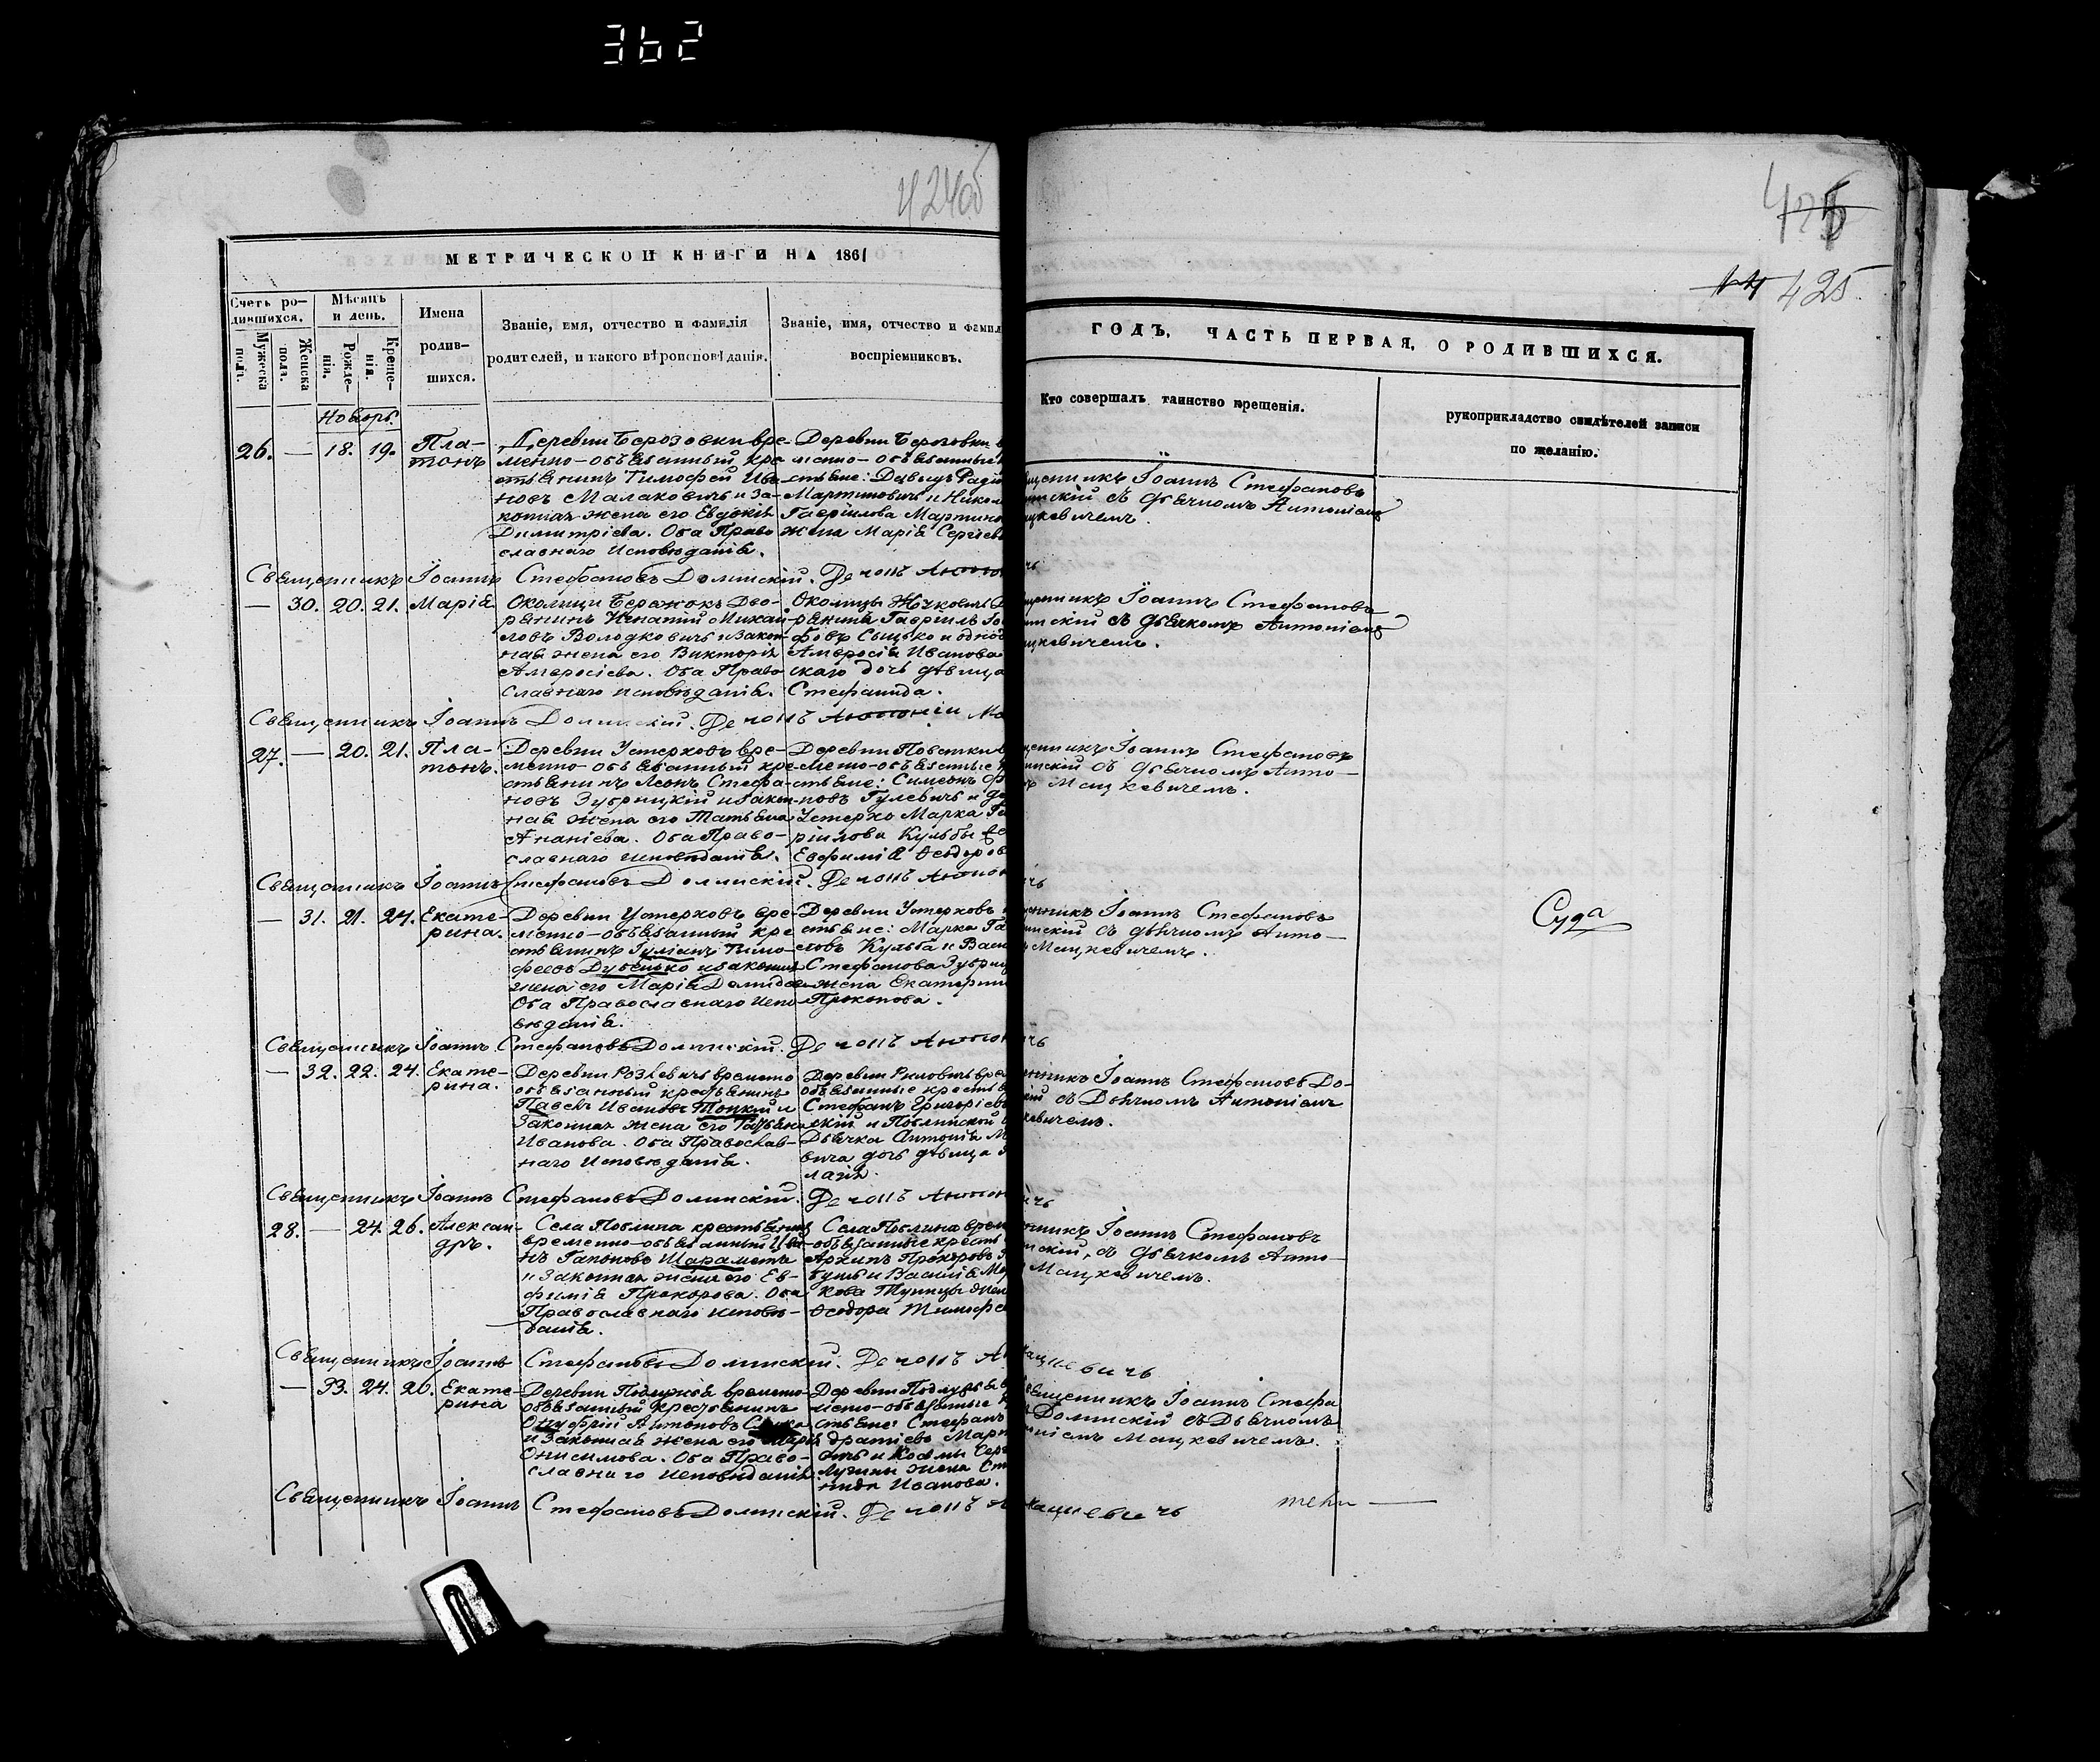 362
424об
МЕТРИЧЕСКОЙ КНИГИ НА 1861
Счетъ ро-
дившихся.
Мужеска
пола.
Женска
пола.
Мѣсяцъ
и день.
Рожде-
нія.
Креще-
нія.
Имена
родив-
шихся.
Званіе, имя, отчество и фамилія
родителей, и какого вѣроисповѣданія.
Званіе, имя, отчество и фамил
воспріемниковъ.
Ноябрь.
26. — 18. 19. Пла-
тонъ
Деревни Березовки вре-
менно-обязанный кре
стьянинъ Тимофей Ива
новъ Малаковичъ и за-
конная жена его Евдокія
Димитріева. Оба Право
славнаго Исповѣданія.
Деревни Березовки в
менно-обязанные
стьяне: Давыдъ Радіо
Мартиновичъ и Никол
Гавріилова Мартино
жена Марія Сергіев
Священникъ Іоаннъ Стефановъ Долинскій. Дячокъ Антон
— 30. 20. 21. Марія
Околицы Беражокъ Дво-
рянинъ Игнатій Михай
ловъ Володковичъ и закон-
ная жена его Викторія
Амвросіева. Оба Право
славнаго исповѣданія.
Околицы Жучковичъ Д
рянинъ Гавріилъ Іо
фовъ Сыцько и однод
Амвросія Иванова
скаго дочь дѣвица
Стефанида.
Священникъ Іоаннъ Долинскій. Дячокъ Антоній Ма
27. — 20. 21. Пла-
тонъ.
Деревни Устерховъ вре-
менно-обязанный кре
стьянинъ Леонъ Стефа-
новъ Зубрицкій и закон-
ная жена его Татьяна
Ананіева. Оба Право-
славнаго исповѣданія.
Деревни Повстки в
менно-обязанные
стьяне: Симеонъ
новъ Гулевичъ и де
Устерхо Марка Га
ріилова Кульбы
Евфимія Ѳеодоров
Священникъ Іоаннъ Стефановъ Долинскій. Дячокъ Антон
— 31. 21. 24. Екате-
рина.
Деревни Устерховъ вре-
менно-обязанный кре
стьянинъ Іуліанъ Тимо-
феевъ Дубенько и законная
жена его Марія Демидова
Оба Православнаго испо-
вѣданія.
Деревни Устерховъ
стьяне: Марко Га
ловъ Кульба и Васи
Стефанова Зубриц
жена Екатерин
Прокопова.
Священникъ Іоаннъ Стефановъ Долинскій. Дячокъ Антон
— 32. 22. 24. Екате-
рина.
Павелъ Ивановъ Тоцкій и
законная жена его Татьяна
Иванова. Оба Православ-
наго Исповѣданія.
Стефанъ Григоріев
скій и Поблинской
Дьячка Антонія М
вича дочь дѣвица
лагія.
Священникъ Іоаннъ Стефановъ Долинскій. Дячокъ Антон
28. — 24. 26. Алексан-
дръ.
Села Поблина крестьянинъ
временно-обязанный Ива
нъ Гапоновъ Шарамета
и законная жена его Ев-
фимія Прохорова. Оба
Православнаго исповѣ-
данія.
Села Поблина врем
обязанные кресть
Архипъ Прохоровъ
бушъ и Василія Мар
кова Тупицы жен
Ѳеодора Тимофе
Священникъ Іоаннъ Стефановъ Долинскій. Дячокъ А
— 33. 24. 26. Екате-
рина
Деревни Подлужья временно-
обязанный крестьянинъ
Онуфрій Антоновъ
и законная жена его Марія
Онисимова. Оба Право-
славнаго исповѣданія.
Деревни Подлужья в
менно-обязанные
стьяне: Стефанъ
дратіевъ Март
вичъ и Козьмы Сер
Лузины жена Ст
нида Иванова.
Священникъ Іоаннъ Стефановъ Долинскій. Дячокъ А
425
ГОДЪ, ЧАСТЬ ПЕРВАЯ, О РОДИВШИХСЯ.
Кто совершалъ таинство крещенія.
рукоприкладство свидѣтелей записи
по желанію.
щенникъ Іоаннъ Стефановъ
инскій съ дьячкомъ Антоніемъ
цкевичемъ.
щенникъ Іоаннъ Стефановъ
инскій съ дьячкомъ Антоніемъ
цкевичемъ.
щенникъ Іоаннъ Стефановъ
инскій съ дьячкомъ Анто-
Мацкевичемъ.
чъ
щенникъ Іоаннъ Стефановъ
инскій съ дьячкомъ Анто-
Мацкевичемъ.
Суда
чъ
енникъ Іоаннъ Стефановъ До-
кій съ Дьячкомъ Антоніемъ
кевичемъ.
чъ
нникъ Іоаннъ Стефановъ
нскій, съ дьячкомъ Анто-
Мацкевичемъ.
ацкевичъ
вященникъ Іоаннъ Стефа
Долинскій съ Дьячкомъ
ніемъ Мацкевичемъ.
ацкевичъ